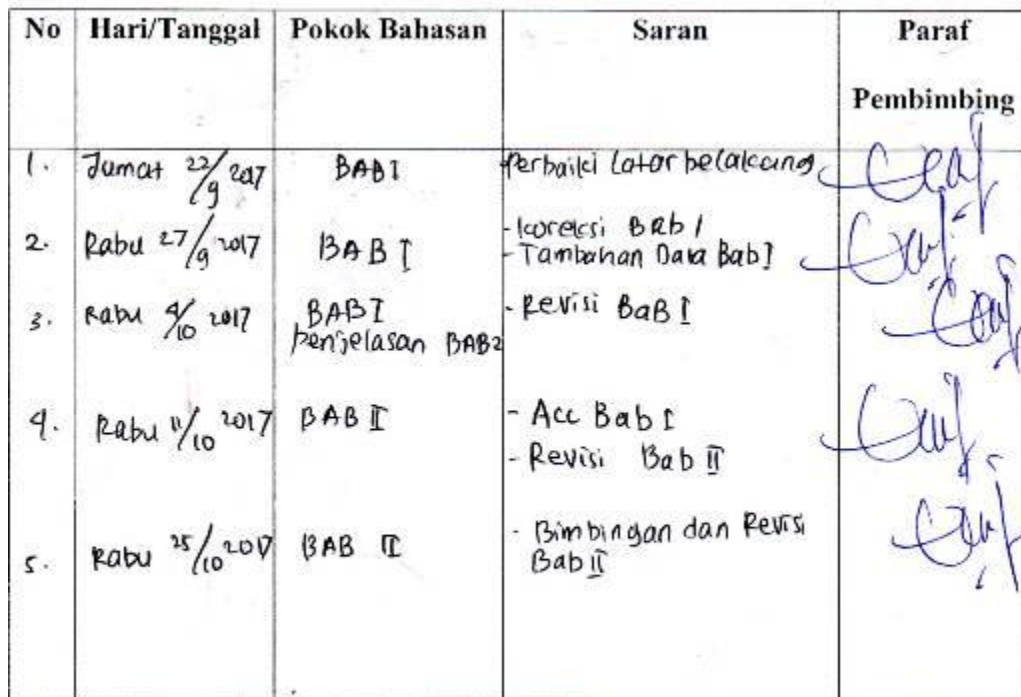 No Hari/Tanggal Pokok Bahasan Saran Paraf
Pembimbing
1. Jumat 22/9 2017 BAB I Perbaiki Latar belakang
2. Rabu 27/9 2017 BAB I - koreksi Bab I
- Tambahan Data Bab I
3. Rabu 4/10 2017 BAB I - Revisi BaB I
penjelasan BAB2
4. Rabu 11/10 2017 BAB II - Acc Bab I
- Revisi Bab II
5. Rabu 25/10 2017 BAB II - Bimbingan dan Revisi
Bab II